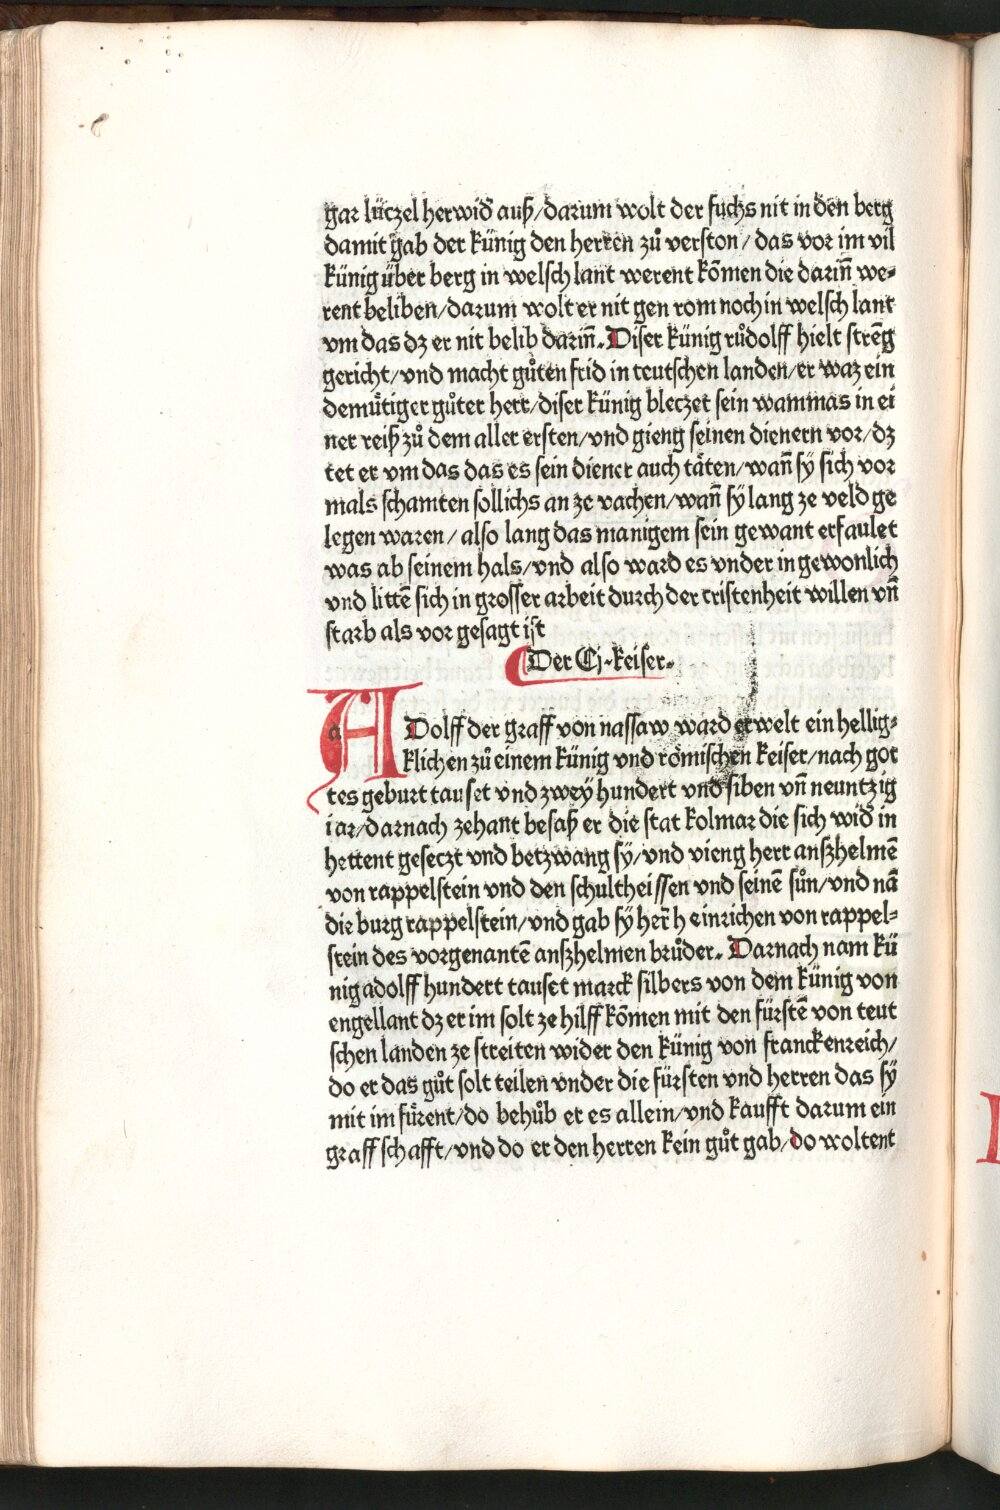 gar lüczel herwid auß/darum wolt der fuchs nit in den berg
damit gab der künig den herren zů verston/das vor im vil
künig über berg in welsch lant werent kōmen die dariñ we⸗
rent beliben/darum wolt er nit gen rom noch in welsch lant
vm das dz er nit belib dariñ. Diser künig růdolff hielt strēg
gericht/vnd macht gůten frid in teutschen landen/er waz ein
demuͤtiger gůter herr/diser künig bleczet sein wammas in ei
ner reiß zů dem aller ersten/vnd gieng seinen dienern vor/dz
tet er vm das das es sein diener auch täten/wañ sy sich vor
mals schamten sollichs an ze vachen/wañ sy lang ze veld ge
legen waren/also lang das manigem sein gewant erfaulet
was ab seinem hals/vnd also ward es vnder in gewonlich
vnd littē sich in grosser arbeit durch der cristenheit willen vñ
starb als vor gesagt ist
Der Cj. keiser.
ADolff der graff von nassaw ward erwelt ein hellig⸗
klichen zů einem künig vnd römischen keiser/nach got
tes geburt tauset vnd zwey hundert vnd siben vñ neuntzig
iar/darnach zehant besaß er die stat kolmar die sich wid in
hettent geseczt vnd betzwang sy/vnd vieng herr anßhelmē
von rappelstein vnd den schultheissen vnd seinē sůn/vnd nā
die burg rappelstein/vnd gab sy her̄ heinrichen von rappel⸗
stein des vorgenantē anßhelmen brůder. Darnach nam kü
nig adolff hundert tauset marck silbers von dem künig von
engellant dz er im solt ze hilff kōmen mit den fürstē von teut
schen landen ze streiten wider den künig von franckenreich/
do er das gůt solt teilen vnder die fürsten vnd herren das sy
mit im fuͤrent/do behůb er es allein/vnd kaufft darum ein
graffschafft/vnd do er den herren kein gůt gab/do woltent